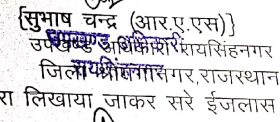 {सुभाष चन्द्र (आर.ए.एस)}
उपखण्ड अधिकारी रायसिंहनगर
जिला श्रीगंगानगर,राजस्थान
रा लिखाया जाकर सरे ईजलास